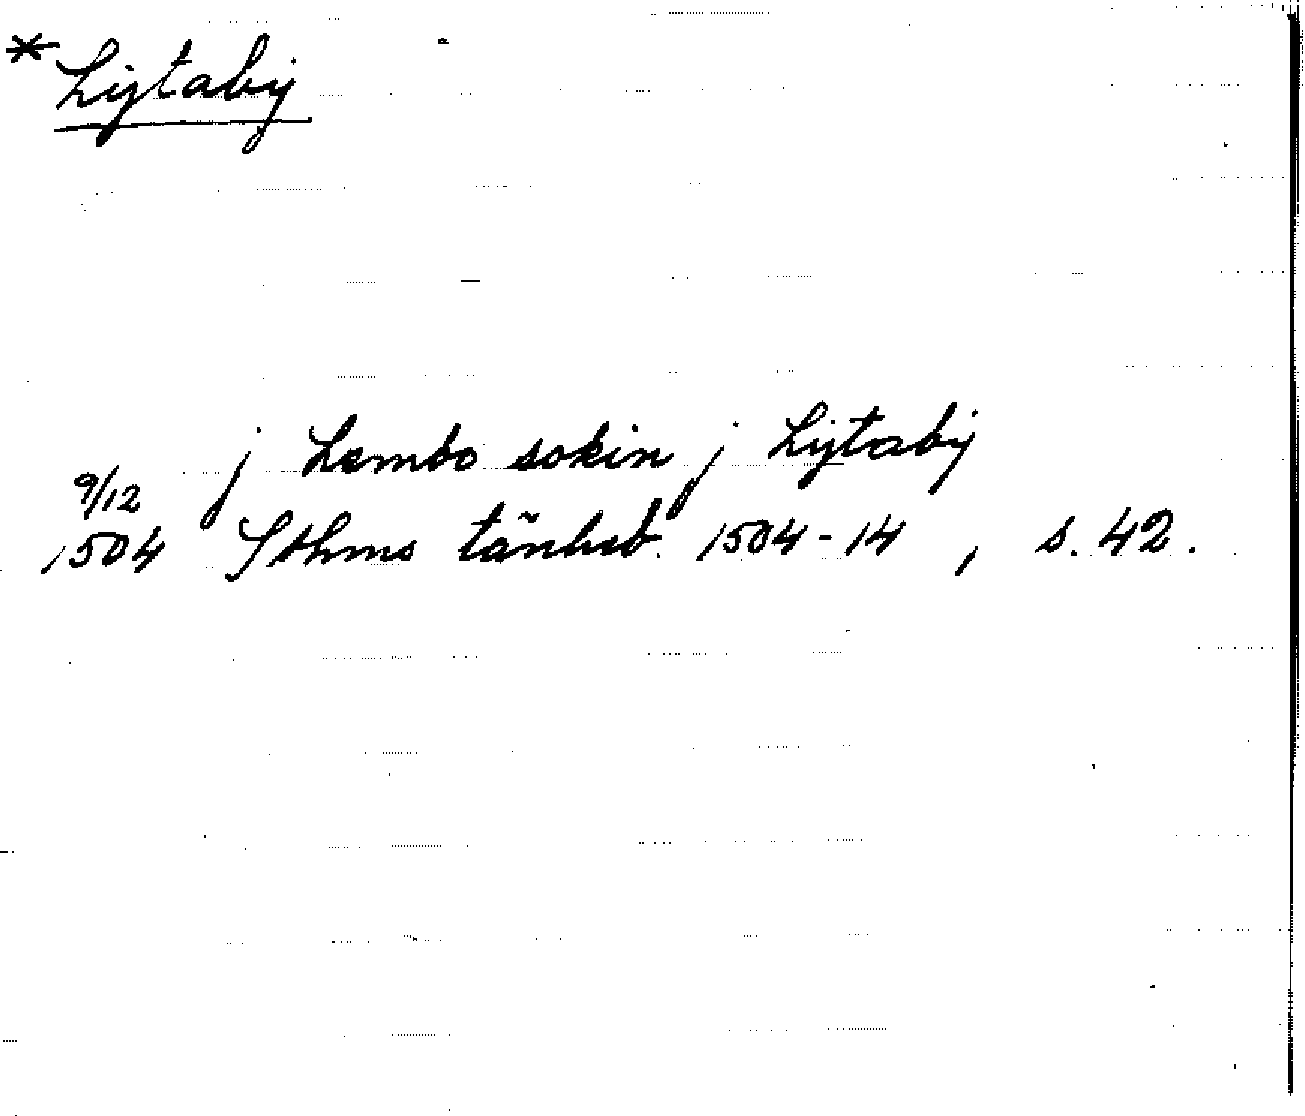 * Lijtabij
j Lembo sokin j Lijtabij
9/12
1504 Sthms tänkeb. 1504-14, s. 42.